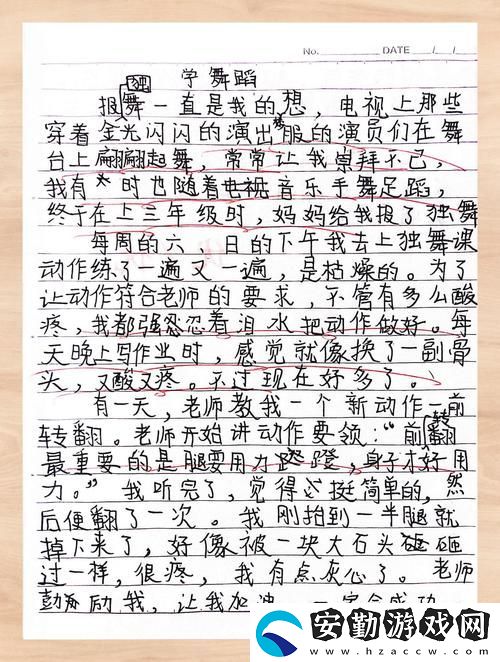 No. DATE / /
学舞蹈
独
报舞一直是我的想，电视上那些
梦
穿着金光闪闪的演出服的演员们在舞
台上翩翩起舞，常常让我崇拜不已，
我有时也随着电视音乐手舞足蹈，
终于在上三年级时，妈妈给我报了独舞
每周的六、日的下午我去上独舞课
动作练了一遍又一遍，是枯燥的。为了
让动作符合老师的要求，不管有多么酸
疼，我都强忍忍着泪水把动作做好。每
天晚上写作业时，感觉就像换了一副骨
头，又酸又疼。不过现在好多了。
有一天，老师教我一个新动作一前
转
转翻。老师开始讲动作要领：“前翻
最重要的是腿要用力蹬，身子才好用
力。”我听完了，觉得挺简单的，然
后便翻了一次。我刚拍到一半腿就
掉下来了，好像被一块大石头砸砸
过一样，很疼，我有点灰心了。老师
励我，让我加油
安勤游戏网
www.hzaccw.com